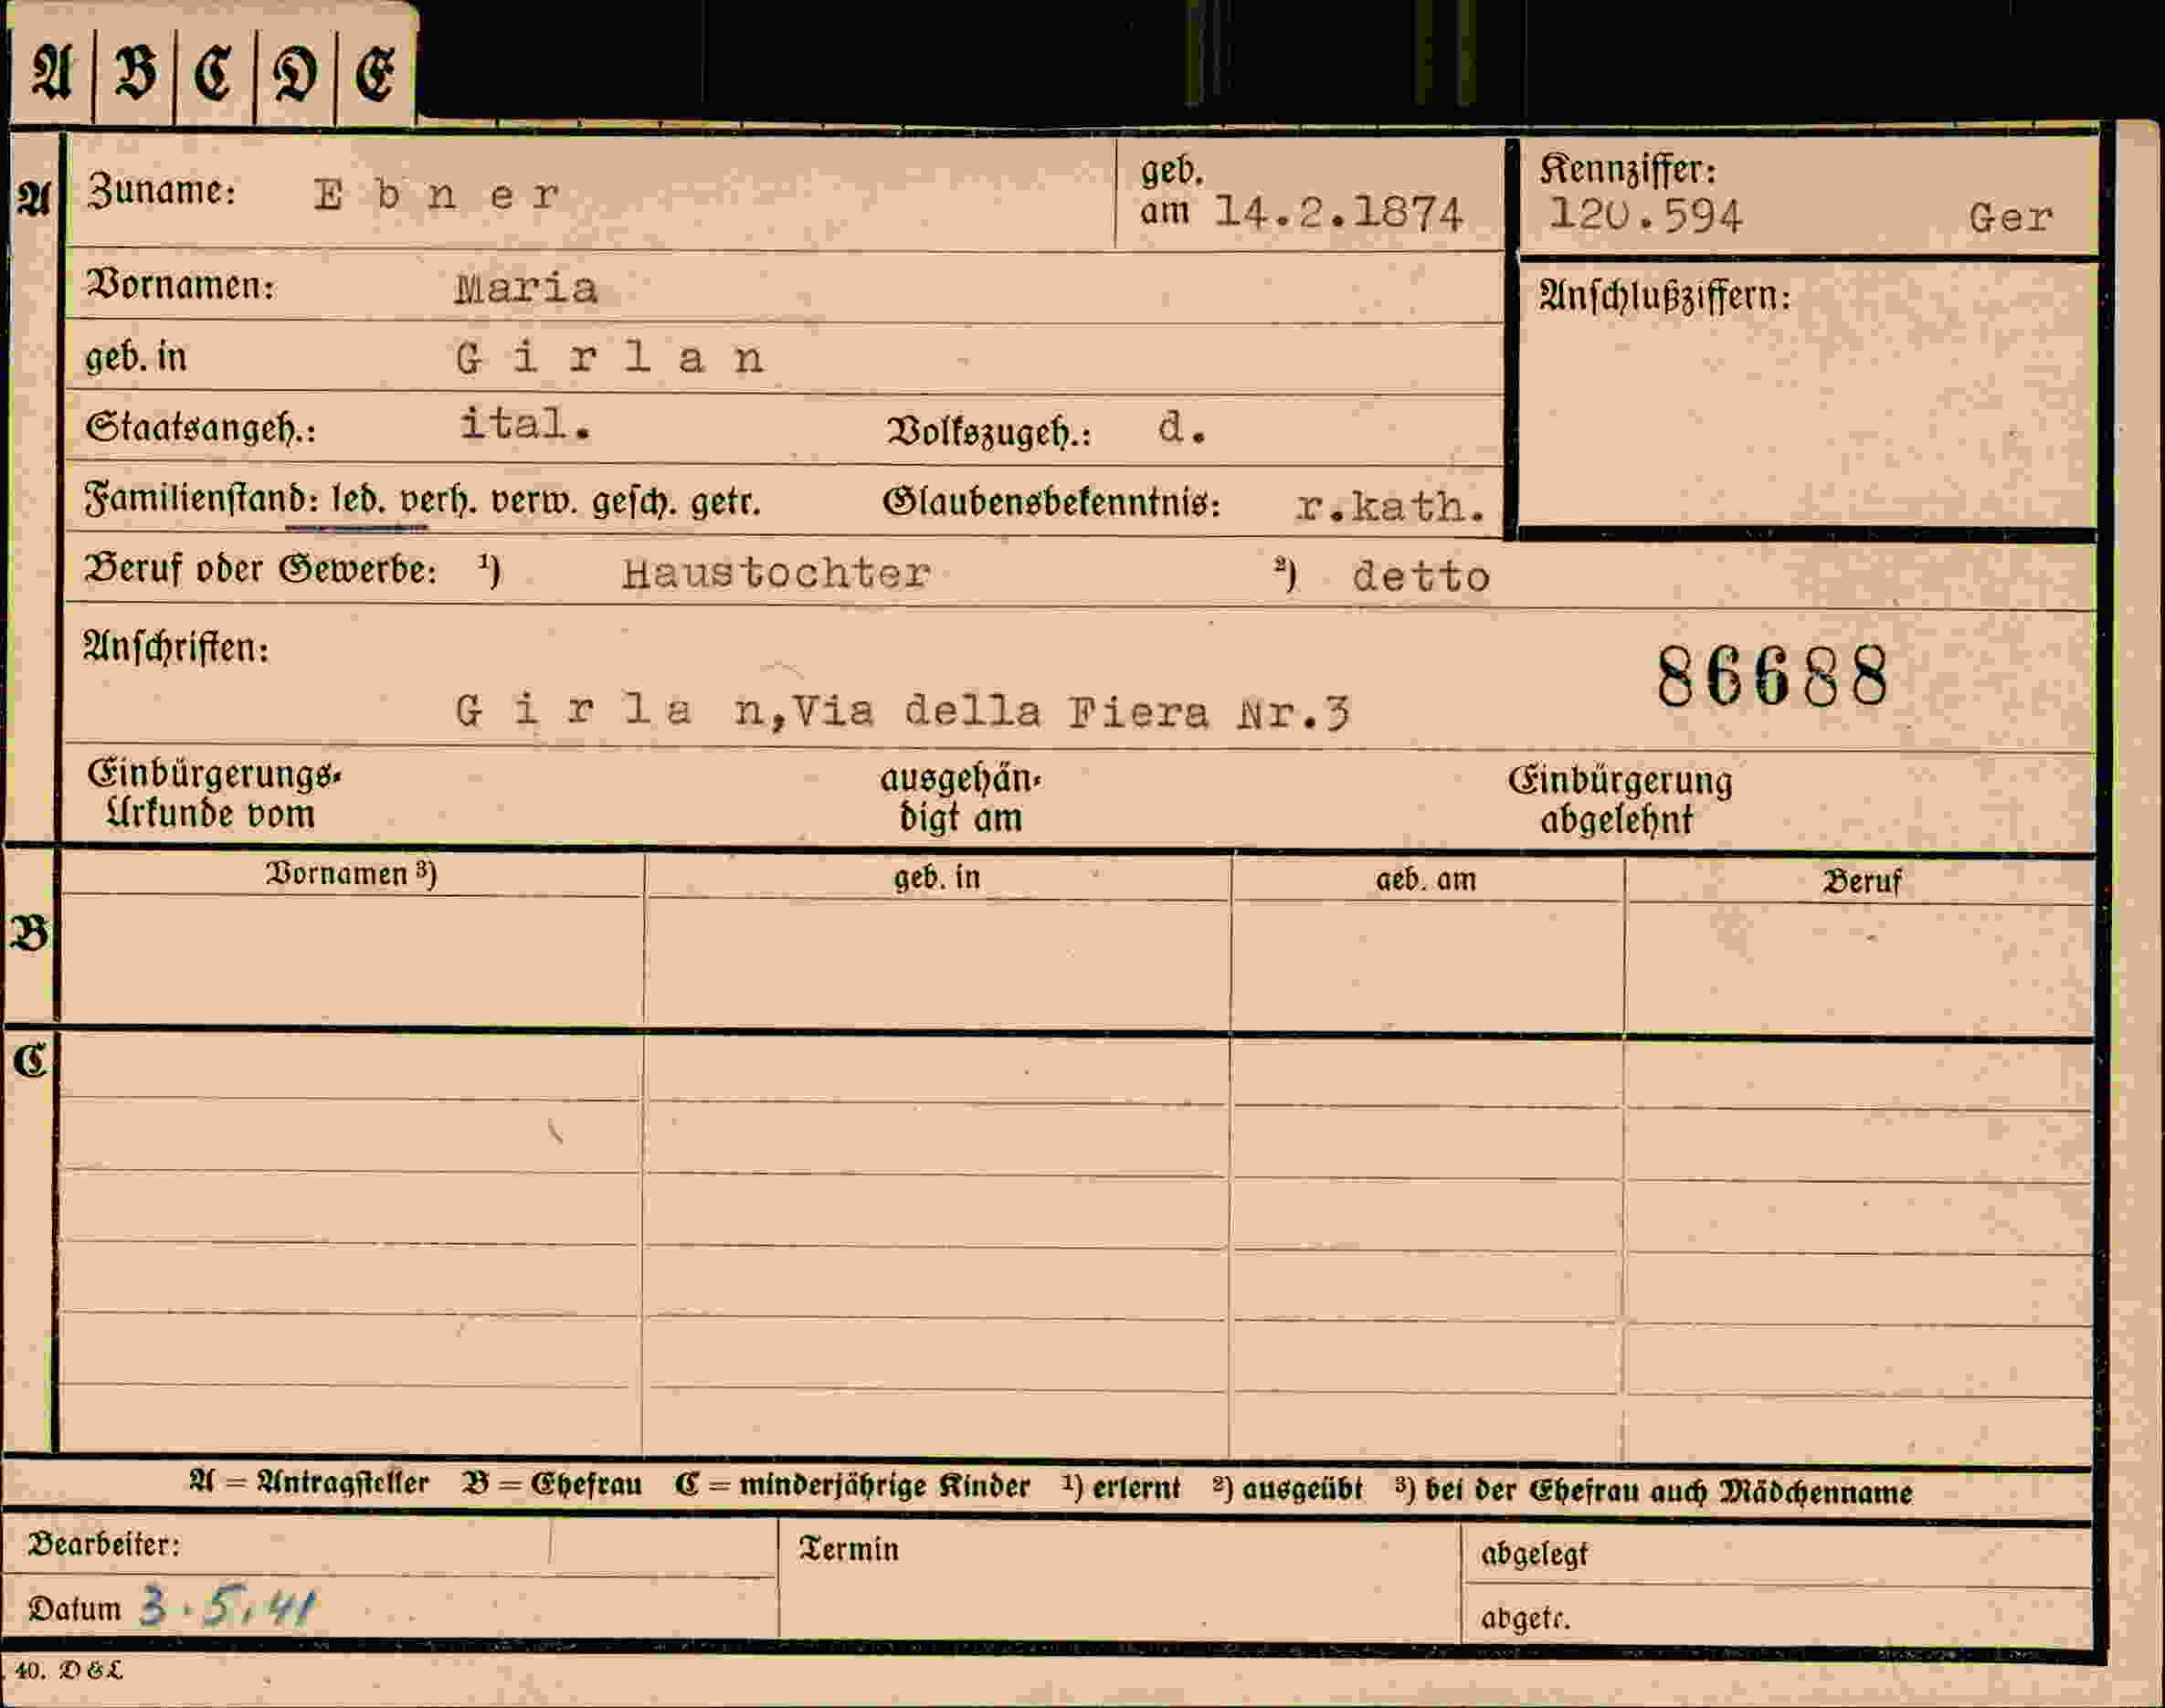 A B C D E
A Zuname: Ebner geb. am 14.2.1874 Kennziffer: 120.594 Ger
Vornamen: Maria Anschlußziffern:
geb. in Girlan
Staatsangeh.: ital. Volkszugeh.: d.
Familienstand: led. verh. verw. gesch. getr. Glaubensbekenntnis: r.kath.
Beruf oder Gewerbe: ¹) Haustochter ²) detto
Anschriften: 86688
Girlan,Via della Fiera Nr.3
Einbürgerungs- ausgehän- Einbürgerung
Urkunde vom digt am abgelehnt
Vornamen ³) geb. in geb. am Beruf
B
C
A = Antragsteller B = Ehefrau C = minderjährige Kinder ¹) erlernt ²) ausgeübt ³) bei der Ehefrau auch Mädchenname
Bearbeiter: Termin abgelegt
Datum 3.5.41 abgetr.
40. D & L